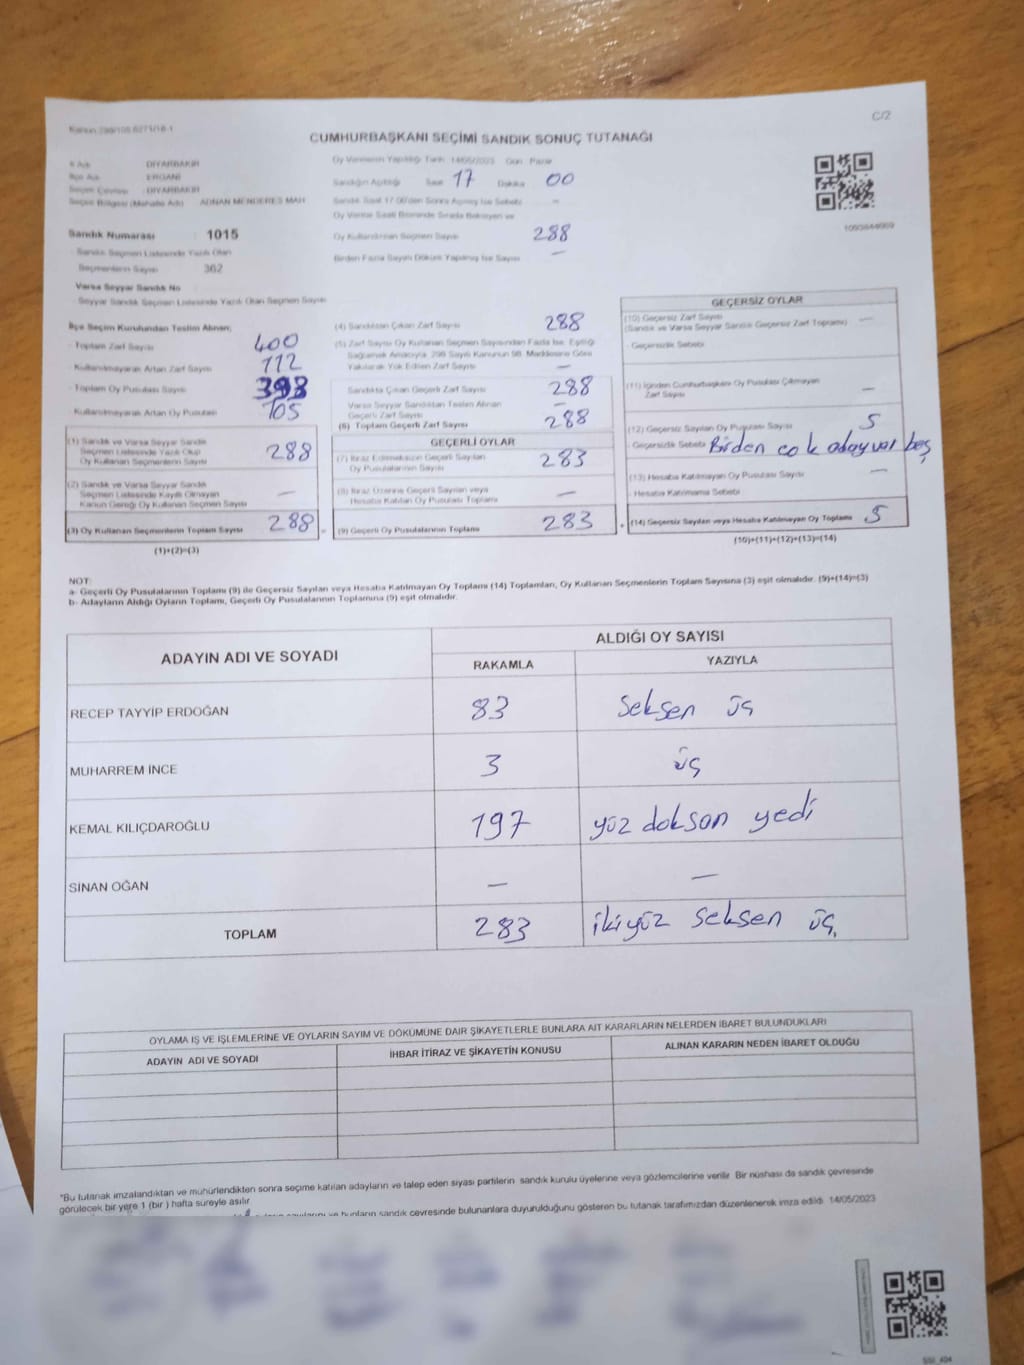 Kanun 298/105 6271/18-1
C/2
CUMHURBAŞKANI SEÇİMİ SANDIK SONUÇ TUTANAĞI
İl Adı DİYARBAKIR
İlçe Adı ERGANİ
Seçim Çevresi DİYARBAKIR
Seçim Bölgesi (Mahalle Adı) ADNAN MENDERES MAH
Sandık Numarası 1015
Sandık Seçmen Listesinde Yazılı Olan
Seçmenlerin Sayısı 362
Varsa Seyyar Sandık No
Seyyar Sandık Seçmen Listesinde Yazılı Olan Seçmen Sayısı
Oy Vermenin Yapıldığı Tarih 14/05/2023 Gün Pazar
Sandığın Açıldığı Saat 17 Dakika 00
Sandık Saat 17.00'den Sonra Açılmış İse Sebebi -
Oy Verme Saati Bitiminde Sırada Bekleyen ve
Oy Kullandırılan Seçmen Sayısı 288
Birden Fazla Sayım Döküm Yapılmış İse Sayısı —
İlçe Seçim Kurulundan Teslim Alınan;
- Toplam Zarf Sayısı 400
- Kullanılmayarak Artan Zarf Sayısı 112
- Toplam Oy Pusulası Sayısı 393
- Kullanılmayarak Artan Oy Pusulası 105
(1) Sandık ve Varsa Seyyar Sandık
Seçmen Listesinde Yazılı Olup
Oy Kullanan Seçmenlerin Sayısı 288
(2) Sandık ve Varsa Seyyar Sandık
Seçmen Listesinde Kayıtlı Olmayan
Kanun Gereği Oy Kullanan Seçmen Sayısı —
(3) Oy Kullanan Seçmenlerin Toplam Sayısı 288
(1)+(2)=(3)
(4) Sandıktan Çıkan Zarf Sayısı 288
(5) Zarf Sayısı Oy Kullanan Seçmen Sayısından Fazla İse, Eşitliği
Sağlamak Amacıyla, 298 Sayılı Kanunun 98. Maddesine Göre
Yakılarak Yok Edilen Zarf Sayısı —
Sandıkta Çıkan Geçerli Zarf Sayısı 288
Varsa Seyyar Sandıktan Teslim Alınan
Geçerli Zarf Sayısı —
(6) Toplam Geçerli Zarf Sayısı 288
GEÇERLİ OYLAR
(7) İtiraz Edilmeksizin Geçerli Sayılan
Oy Pusulalarının Sayısı 283
(8) İtiraz Üzerine Geçerli Sayılan veya
Hesaba Katılan Oy Pusulası Toplamı —
= (9) Geçerli Oy Pusulalarının Toplamı 283
GEÇERSİZ OYLAR
(10) Geçersiz Zarf Sayısı —
(Sandık ve Varsa Seyyar Sandık Geçersiz Zarf Toplamı)
- Geçersizlik Sebebi
(11) İçinden Cumhurbaşkanı Oy Pusulası Çıkmayan
Zarf Sayısı —
(12) Geçersiz Sayılan Oy Pusulası Sayısı 5
- Geçersizlik Sebebi Birden çok aday var beş
(13) Hesaba Katılmayan Oy Pusulası Sayısı —
- Hesaba Katılmama Sebebi
+ (14) Geçersiz Sayılan veya Hesaba Katılmayan Oy Toplamı 5
(10)+(11)+(12)+(13)=(14)
NOT:
a- Geçerli Oy Pusulalarının Toplamı (9) ile Geçersiz Sayılan veya Hesaba Katılmayan Oy Toplamı (14) Toplamları, Oy Kullanan Seçmenlerin Toplam Sayısına (3) eşit olmalıdır. (9)+(14)=(3)
b- Adayların Aldığı Oyların Toplamı, Geçerli Oy Pusulalarının Toplamına (9) eşit olmalıdır.
ADAYIN ADI VE SOYADI ALDIĞI OY SAYISI
RAKAMLA YAZIYLA
RECEP TAYYİP ERDOĞAN 83 Seksen üç
MUHARREM İNCE 3 üç
KEMAL KILIÇDAROĞLU 197 yüz doksan yedi
SİNAN OĞAN — —
TOPLAM 283 iki yüz seksen üç
OYLAMA İŞ VE İŞLEMLERİNE VE OYLARIN SAYIM VE DÖKÜMÜNE DAİR ŞİKAYETLERLE BUNLARA AİT KARARLARIN NELERDEN İBARET BULUNDUKLARI
ADAYIN ADI VE SOYADI İHBAR İTİRAZ VE ŞİKAYETİN KONUSU ALINAN KARARIN NEDEN İBARET OLDUĞU
*Bu tutanak imzalandıktan ve mühürlendikten sonra seçime katılan adayların ve talep eden siyasi partilerin sandık kurulu üyelerine veya gözlemcilerine verilir. Bir nüshası da sandık çevresinde
görülecek bir yere 1 (bir ) hafta süreyle asılır
bunların sandık çevresinde bulunanlara duyurulduğunu gösteren bu tutanak tarafımızdan düzenlenerek imza edildi. 14/05/2023